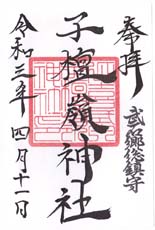 奉拝
武郷総鎮守
子檀嶺神社
令和三年四月十一日